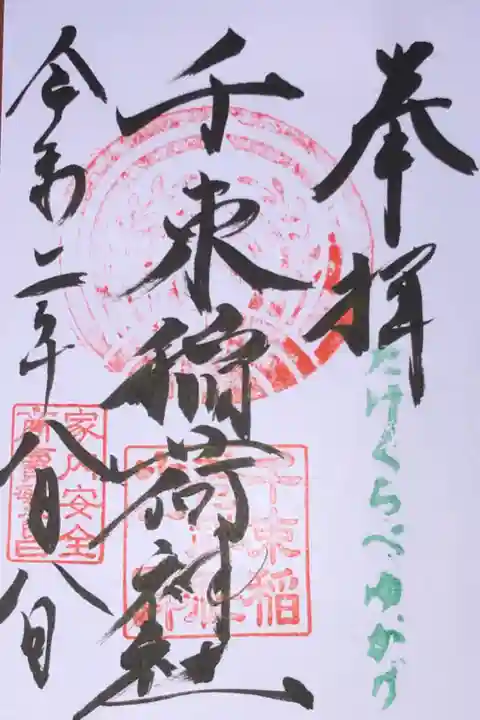 奉拝
たけくらべゆかり
千束稲荷神社
千束稲
家内安全
商売繁昌
令和二年八月八日